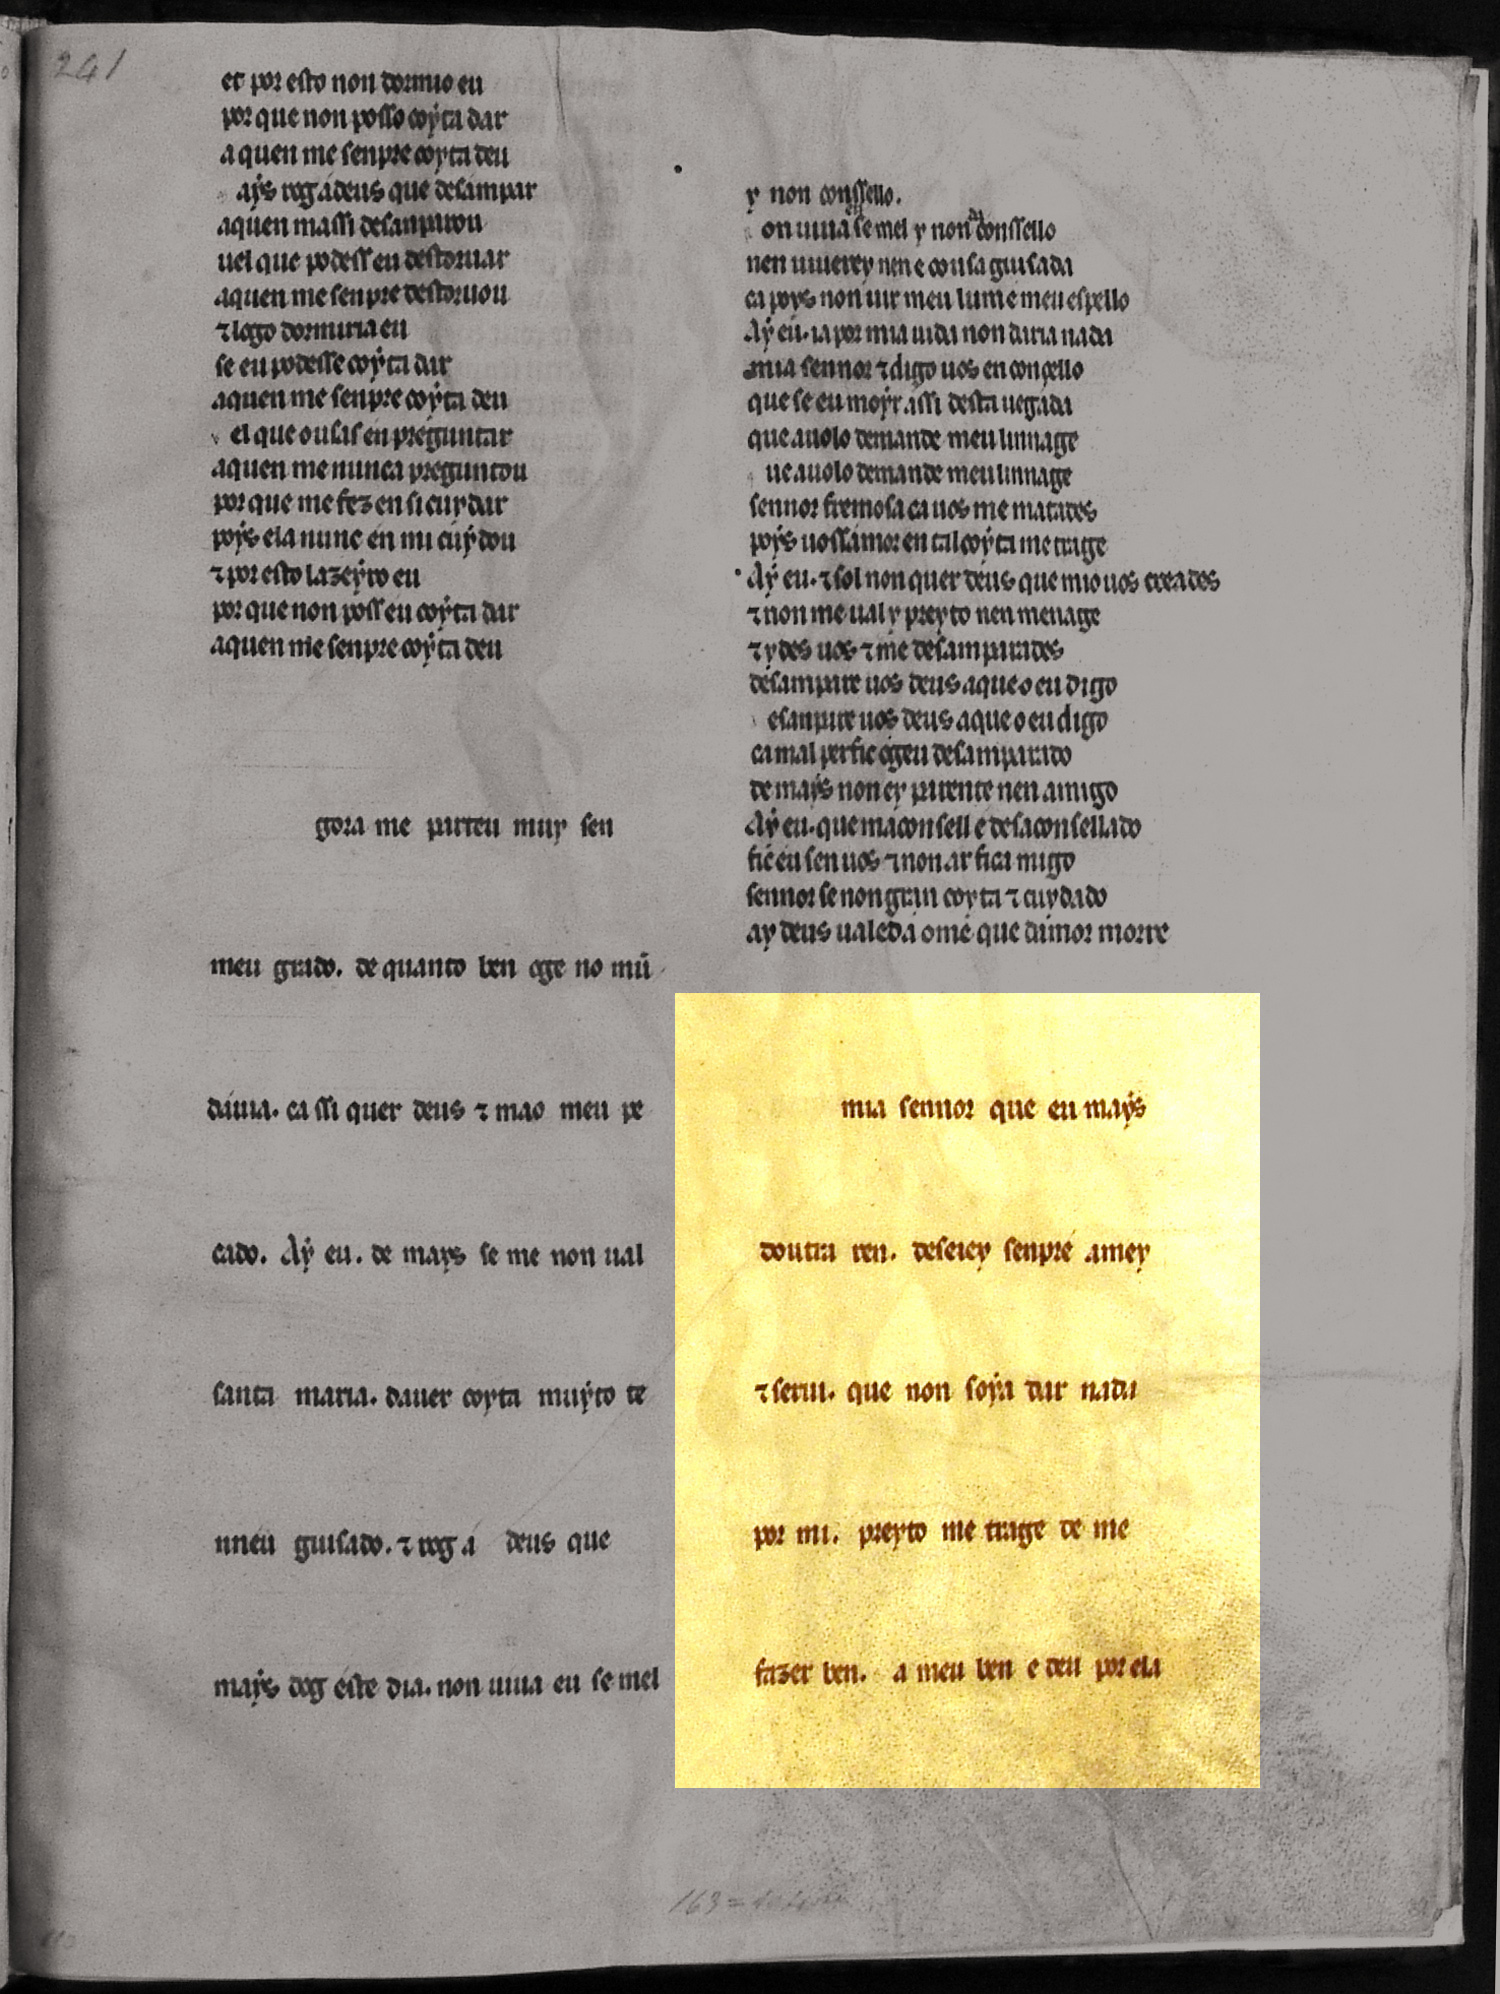 241
et por esto non dormio eu
por que non posso coyta dar
a quen me senpre coyta deu
ays rogadeus que desampar
aquen massi desanparou
uel que podess eu destoruar
aquen me senpre destoruou
⁊ logo dormiria eu
se eu podesse coyta dar
aquen me senpre coyta deu
el que ousas en preguntar
aquen me nunca preguntou
por que me fez en si cuydar
poys ela nunc en mi cuydou
⁊ por esto lazeyro eu
por que non poss eu coyta dar
aquen me senpre coyta deu
gora me parteu muy sen
meu grado. de quanto ben oge no mũ
dauia. ca ssi quer deus ⁊ mao meu pe
cado. Ay eu. de mays se me non ual
santa maria. dauer coyta muyto te
nneu guisado. ⁊ rog a deus que
mays dog este dia. non uiua eu se mel
y non conssello.
on uiua se mel y non da conssello
nen uiuerey nen e cousa guisada
ca poys non uir meu lume meu espello
Ay eu. ia por mia uida non daria nada
mia sennor ⁊ digo uos en conçello
que se eu moyr assi desta uegada
que auolo demande meu linnage
ue auolo demande meu linnage
sennor fremosa ca uos me matades
poys uossamor en tal coyta me trage
Ay eu. ⁊ sol non quer deus que mio uos creades
⁊ non me ual y preyto nen menage
⁊ ydes uos ⁊ me desamparades
desampare uos deus aque o eu digo
esanpare uos deus aque o eu digo
ca mal per fic ogeu desamparado
de mays non ey parente nen amigo
Ay eu. que maconsell e desaconsellado
fic eu sen uos ⁊ non ar fica migo
sennor se non gran coyta ⁊ cuydado
ay deus ualed a ome que damor morre
mia sennor que eu mays
doutra ren. deseiey senpre amey
⁊ serui. que non soya dar nada
por mi. preyto me trage de me
fazer ben. a meu ben e deu por ela
163 =